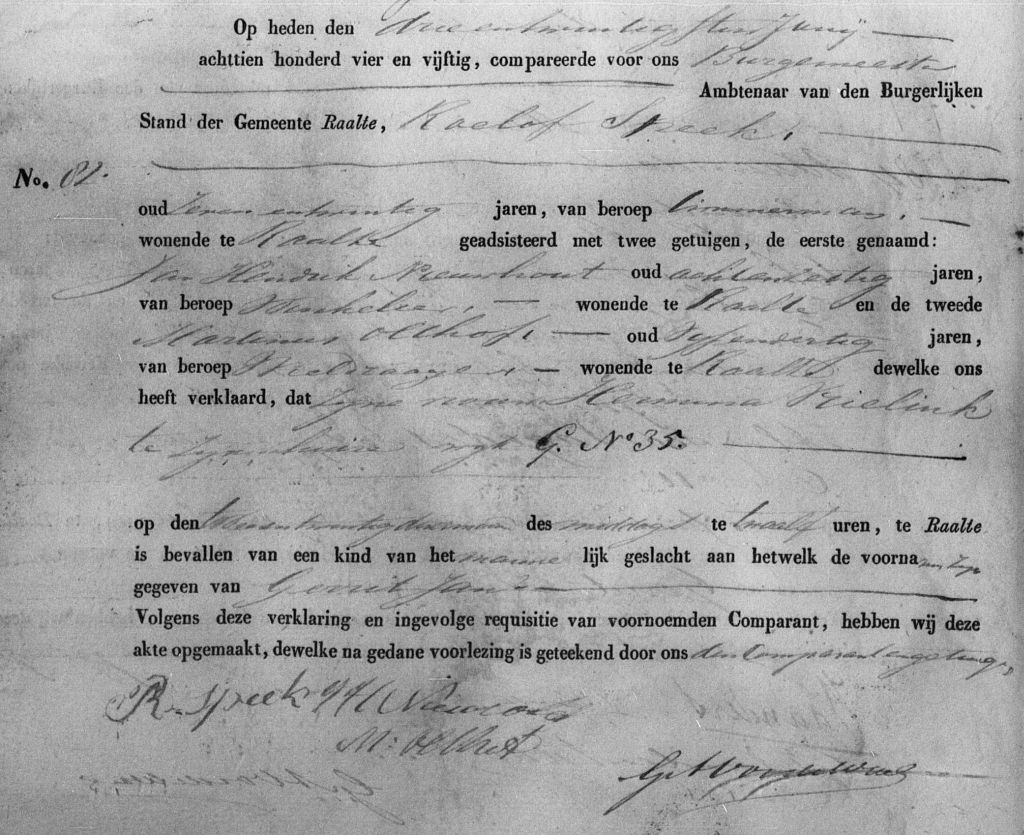 Op heden den drie en twintigsten Junij
achttien honderd vier en vijftig, compareerde voor ons Burgemeester
Ambtenaar van den Burgerlijken
Stand der Gemeente Raalte, Roelof Spreek,
No. 82.
oud zeven en twintig jaren, van beroep timmerman,
wonende te Raalte geadsisteerd met twee getuigen, de eerste genaamd:
Jan Hendrik Nieuwhout oud achtenzestig jaren,
van beroep Winkelier, wonende te Raalte en de tweede
Martinus Olthof oud vijfendertig jaren,
van beroep wonende te Raalte dewelke ons
heeft verklaard, dat zijne vrouw Hermina Rielink
te zijnen huize wijk G. No 35.
op den des middags te twaalf uren, te Raalte
is bevallen van een kind van het manne lijk geslacht aan hetwelk de voorna men zijn
gegeven van Gerrit Jan
Volgens deze verklaring en ingevolge requisitie van voornoemden Comparant, hebben wij deze
akte opgemaakt, dewelke na gedane voorlezing is geteekend door ons den Comparant en getuigen
R. Spreek